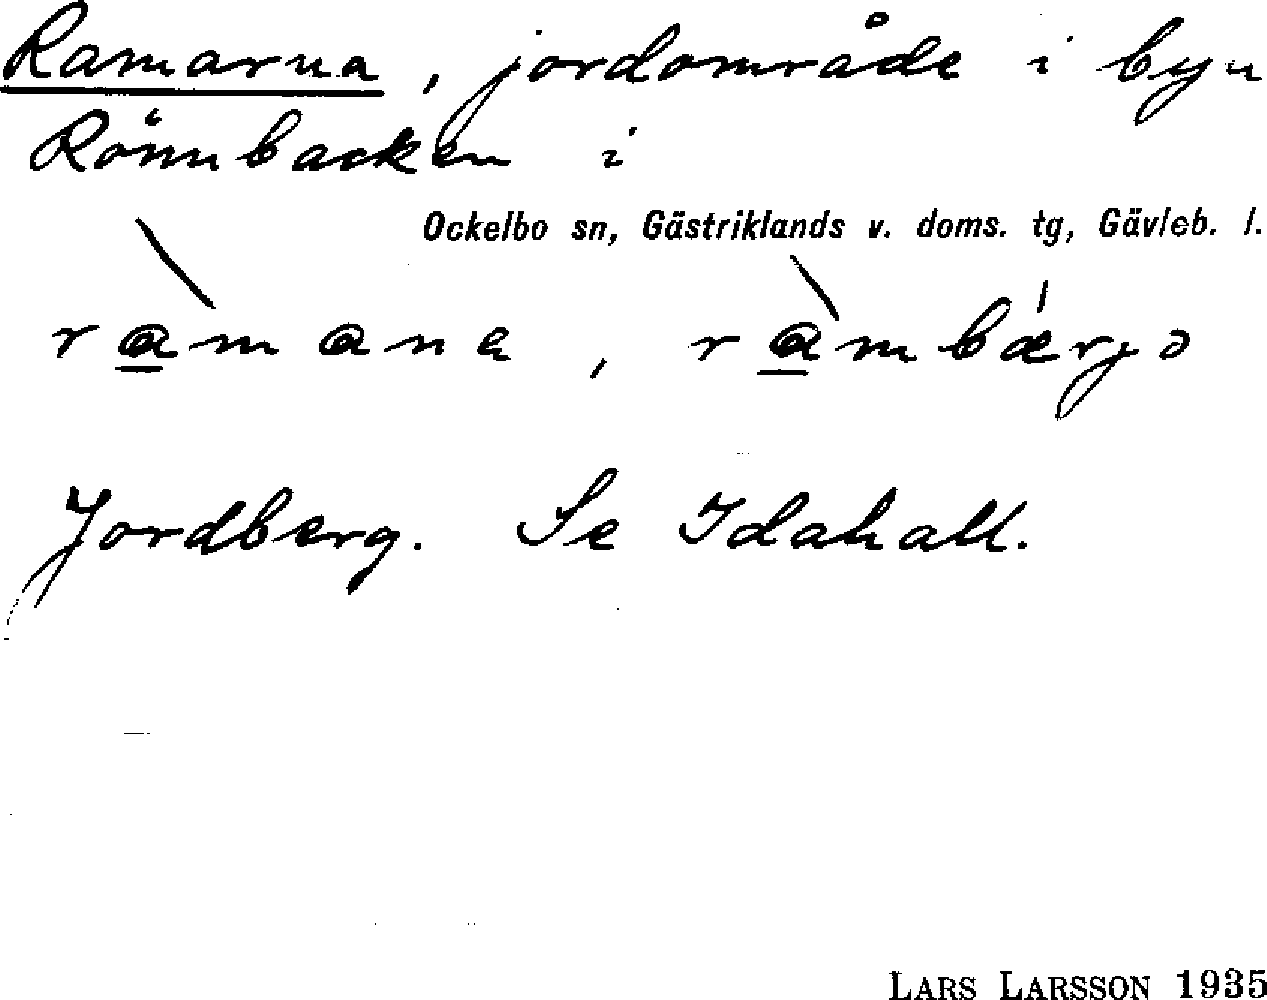 Ramarna, jordområde i byn
Rönnbacken i
Ockelbo sn, Gästriklands v. doms. tg, Gävleb. l.
ràmana, ràmbǽrjə
Jordberg. Se Idahall.
LARS LARSSON 1935